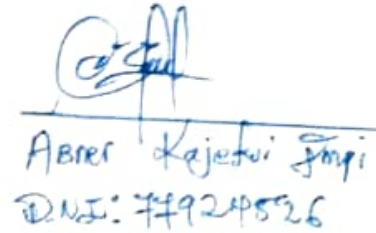 Abner Kajekui Impi
D.N.I: 77924526